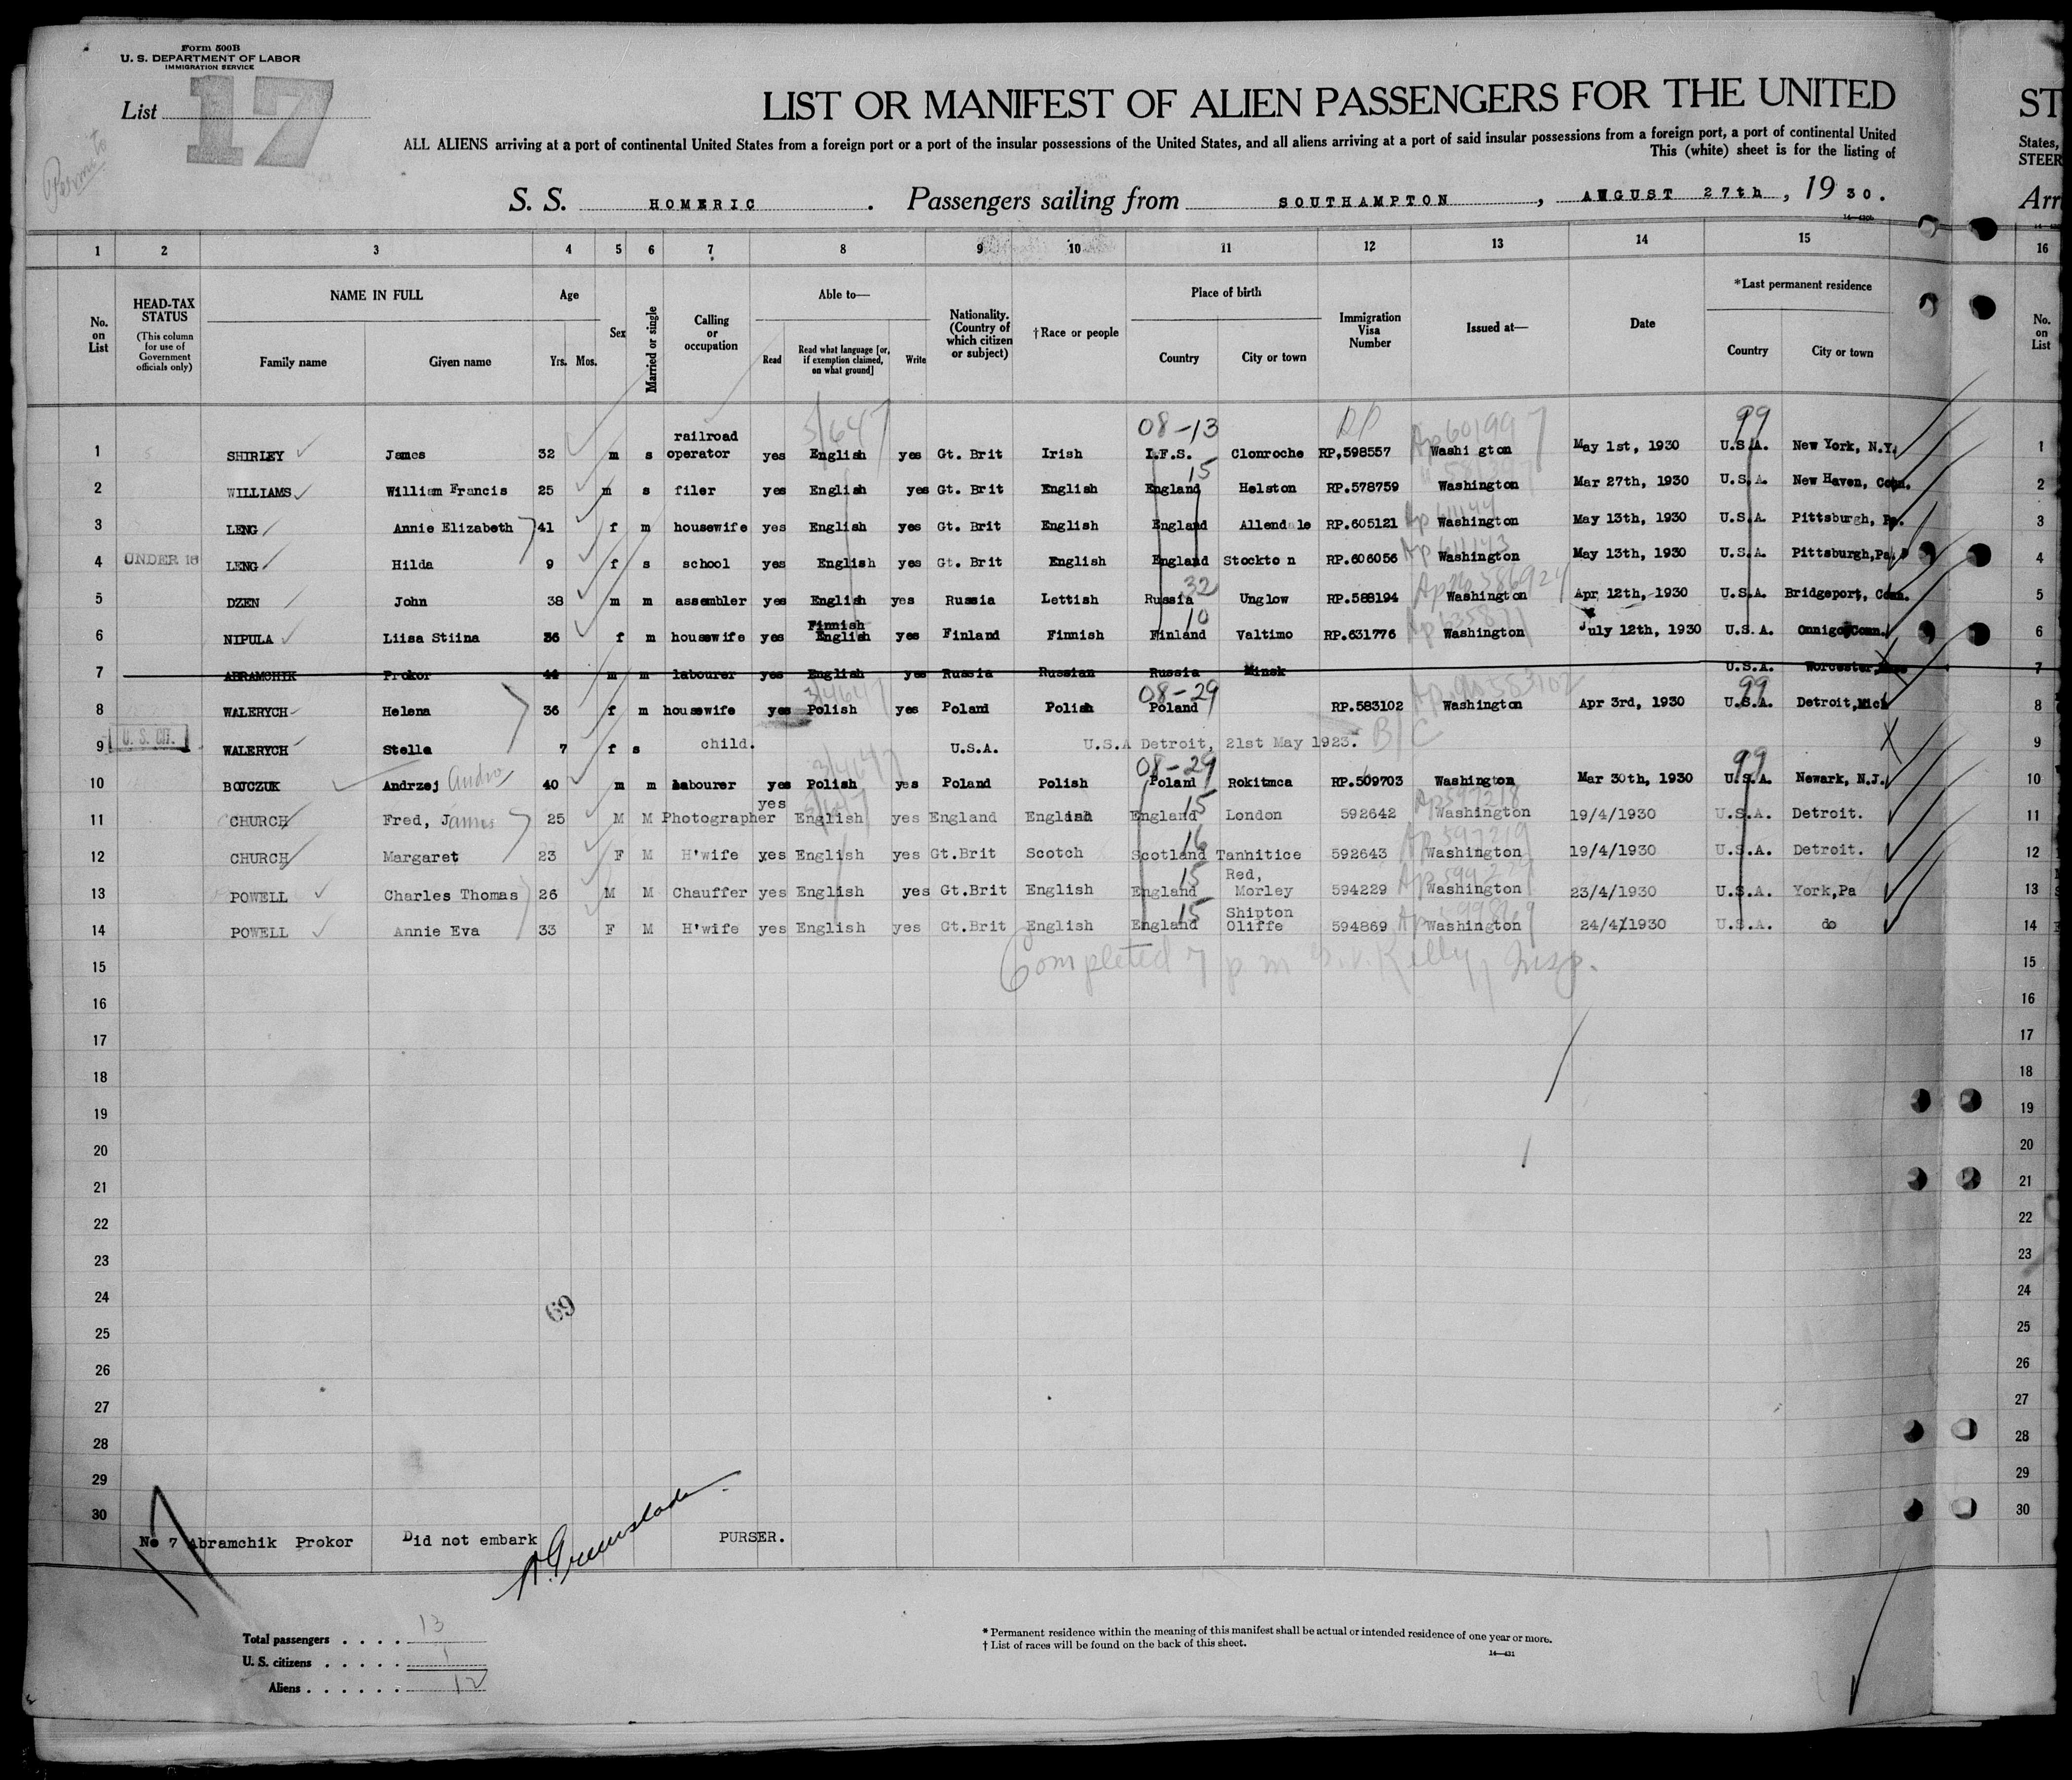 Form 500B
U. S. DEPARTMENT OF LABOR
IMMIGRATION SERVICE
List 17
Permits
LIST OR MANIFEST OF ALIEN PASSENGERS FOR THE UNITED
ALL ALIENS arriving at a port of continental United States from a foreign port or a part of the insular possessions of the United States, and all aliens arriving at a port of said insular possessions from a foreign port, a port of continental United
This (white) sheet is for the listing of
S. S. HOMERIC. Passengers sailing from SOUTHAMPTON, AUGUST 27th, 1930.
ST
States,
STEER
Arr
1 2 3 4 5 6 7 8 9 10 11 12 13 14 15 16
No. on List
HEAD-TAX STATUS
(This column for use of Government officials only)
NAME IN FULL
Family name Given name
Age
Yrs. Mos.
Sex
Married or single
Calling or occupation
Able to—
Read
Read what language [or, if exemption claimed, on what ground]
Write
Nationality. (Country of which citizen or subject)
†Race or people
Place of birth
Country City or town
Immigration Visa Number
Issued at—
Date
*Last permanent residence
Country City or town
No. on List
3/647 08-13 RP Ap 601997 99
1 SHIRLEY James 32 m s railroad operator yes English yes Gt. Brit Irish I.F.S. Clonroche RP.598557 Washi gton May 1st, 1930 U.S.A. New York, N.Y. 1
15
2 WILLIAMS William Francis 25 m s filer yes English yes Gt. Brit English England Helston RP.578759 Washington Mar 27th, 1930 U.S.A. New Haven, Conn. 2
3 LENG Annie Elizabeth 41 f m housewife yes English yes Gt. Brit English England Allendale RP.605121 Washington May 13th, 1930 U.S.A. Pittsburgh, Pa. 3
4 UNDER 16 LENG Hilda 9 f s school yes English yes Gt. Brit English England Stockto n RP.606056 Washington May 13th, 1930 U.S.A. Pittsburgh, Pa. 4
32
5 DZEN John 38 m m assembler yes English yes Russia Lettish Russia Unglow RP.588194 Washington Apr 12th, 1930 U.S.A. Bridgeport, Conn. 5
10 Ap 635871
6 NIPULA Liisa Stiina 36 f m housewife yes Finnish English yes Finland Finnish Finland Valtimo RP.631776 Washington July 12th, 1930 U.S.A. Conn. 6
7 ABRAMCHIK Prokor 44 m m labourer yes English yes Russia Russian Russia Minsk U.S.A. Worcester, 7
3/4647 08-29 Ap. No 583102 99
8 WALERYCH Helena 36 f m housewife yes Polish yes Poland Polish Poland RP.583102 Washington Apr 3rd, 1930 U.S.A. Detroit, Mich 8
9 U. S. CIT. WALERYCH Stella 7 f s child. U.S.A. U.S.A Detroit, 21st May 1923. B/C 9
3/4647 08-29 99
10 BOJCZUK Andrzej Andro 40 m m labourer yes Polish yes Poland Polish Poland Rokitmca RP.509703 Washington Mar 30th, 1930 U.S.A. Newark, N.J. 10
15 Ap 597218
11 CHURCH Fred, James 25 M M Photographer yes English yes England English England London 592642 Washington 19/4/1930 U.S.A. Detroit. 11
16 Ap 597219
12 CHURCH Margaret 23 F M H'wife yes English yes Gt.Brit Scotch Scotland Tanhitice 592643 Washington 19/4/1930 U.S.A. Detroit. 12
15
13 POWELL Charles Thomas 26 M M Chauffer yes English yes Gt.Brit English England Red, Morley 594229 Washington 23/4/1930 U.S.A. York,Pa 13
15 Ap 599869
14 POWELL Annie Eva 33 F M H'wife yes English yes Gt.Brit English England Shipton Oliffe 594869 Washington 24/4/1930 U.S.A. do 14
15 Completed 7 p m Kelly, Insp. 15
16 16
17 17
18 18
19 19
20 20
21 21
22 22
23 23
24 24
69
25 25
26 26
27 27
28 28
29 29
30 30
No 7 Abramchik Prokor Did not embark A. Greenslade. PURSER.
Total passengers . . . . 13
U. S. citizens . . . . . 1
Aliens . . . . . . 12
* Permanent residence within the meaning of this manifest shall be actual or intended residence of one year or more.
† List of races will be found on the back of this sheet.
14—431